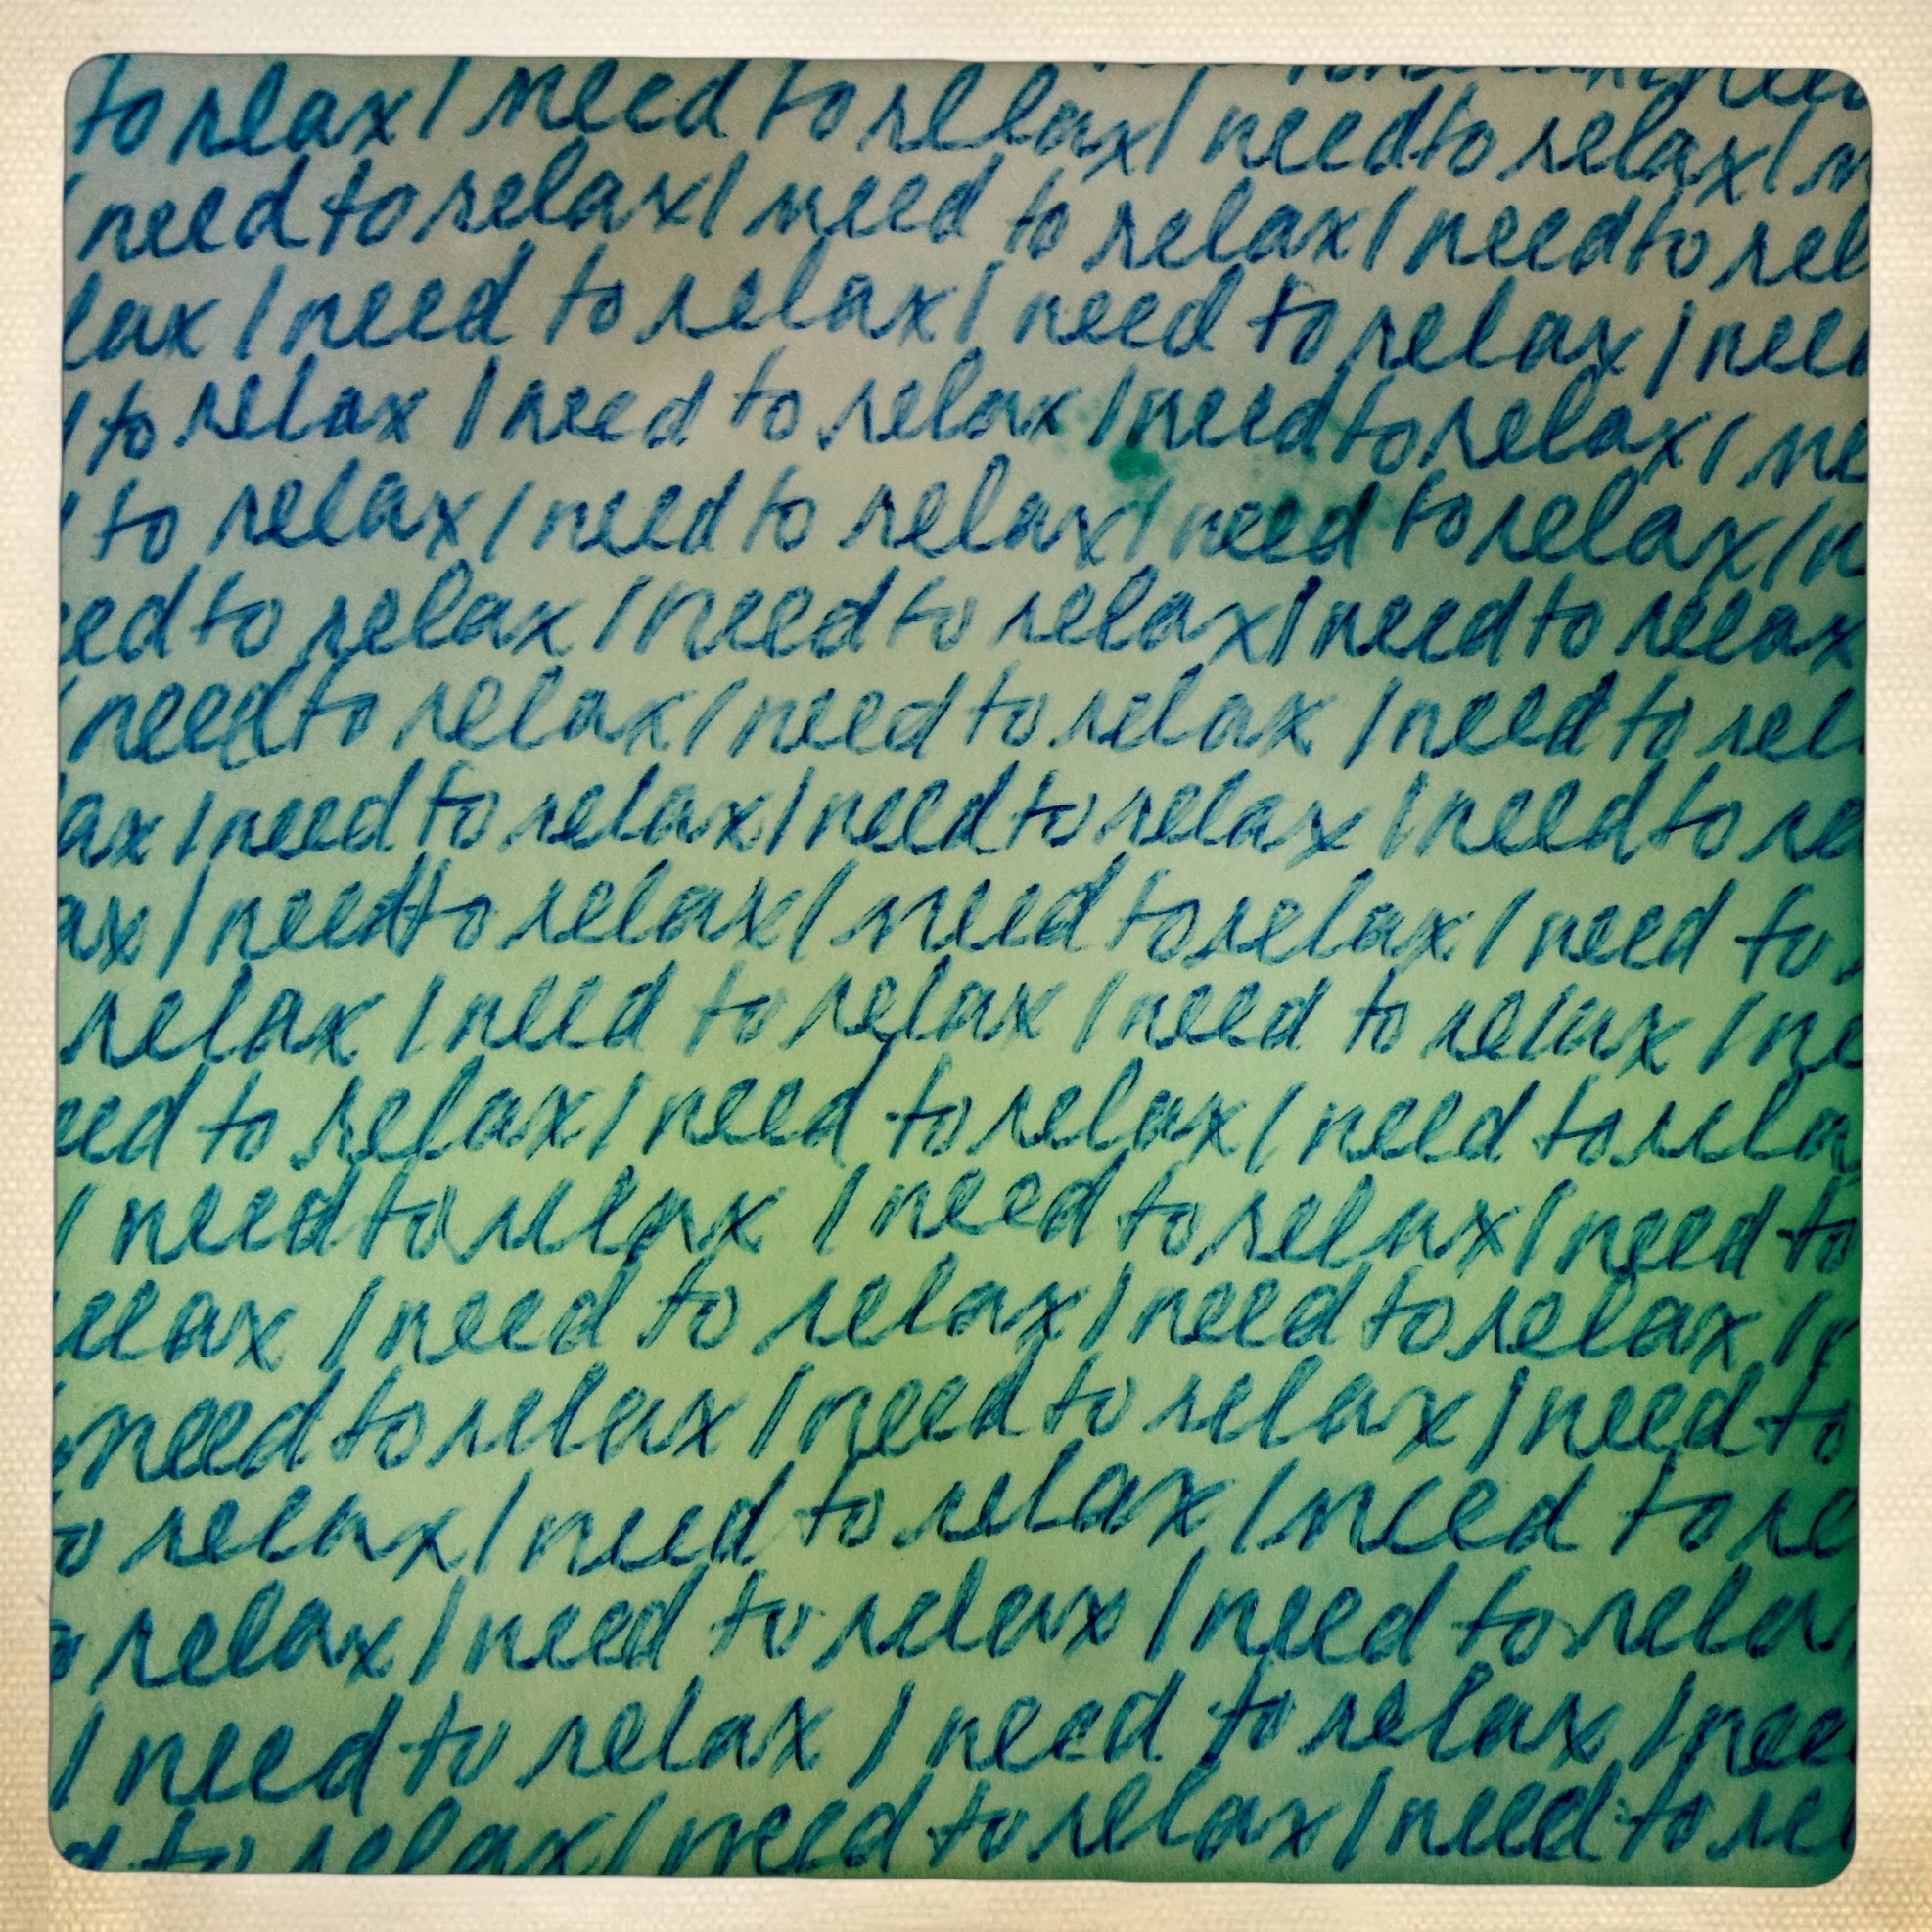 to relax I need to relax I need to relax I
I need to relax I need to relax I need to rel
lax I need to relax I need to relax I need
to relax I need to relax I need to relax I ne
to relax I need to relax I need to relax I n
eed to relax I need to relax I need to relax
I need to relax I need to relax I need to rel
ax I need to relax I need to relax I need to re
ax I need to relax I need to relax I need to
relax I need to relax I need to relax I ne
eed to relax I need to relax I need to rela
I need to relax I need to relax I need to
relax I need to relax I need to relax I
need to relax I need to relax I need to
to relax I need to relax I need to re
o relax I need to relax I need to rela
I need to relax I need to relax I nee
d to relax I need to relax I need to rel